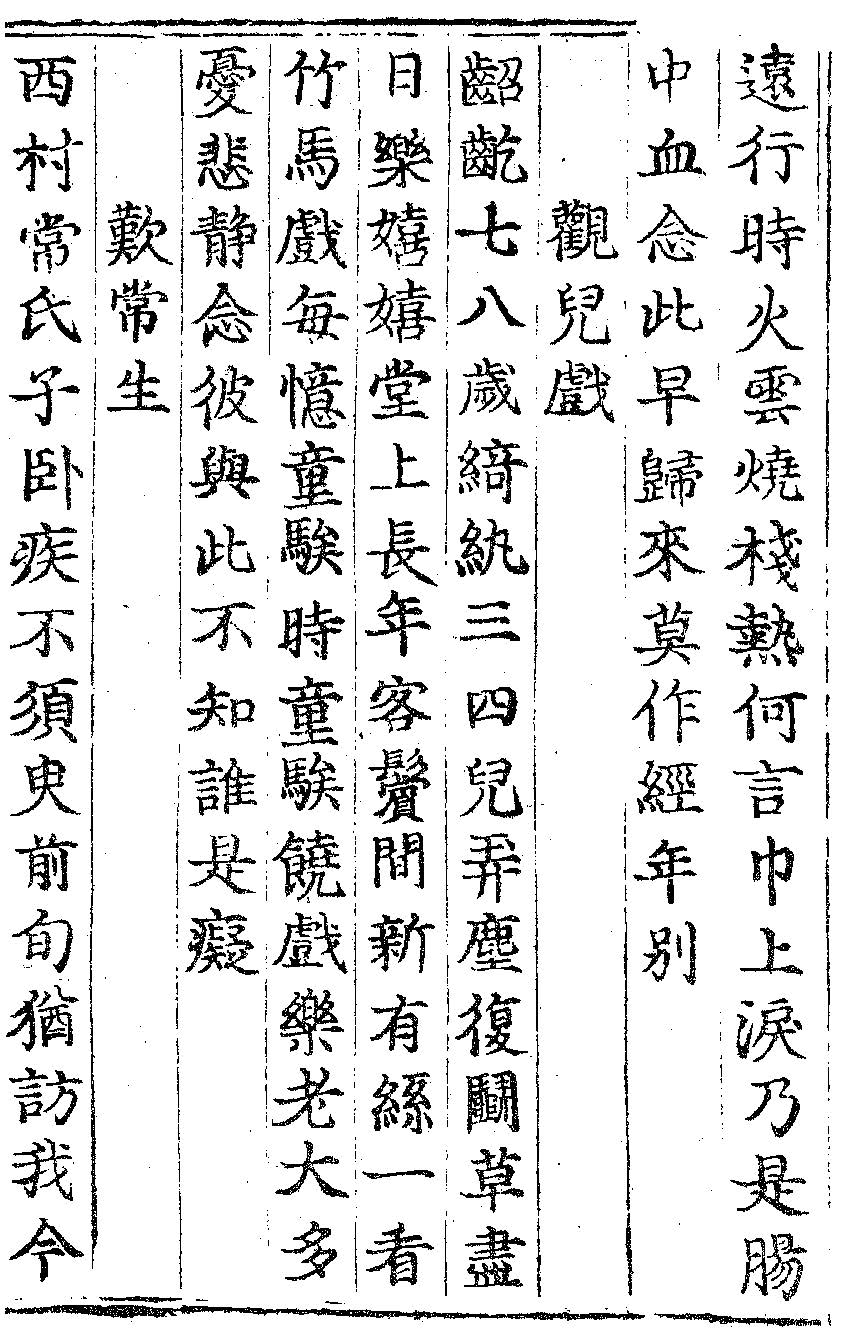 遠行時火雲燒棧熱何言巾上淚乃是腸
中血念此早歸來莫作經年別
觀兒戲
齠齔七八歲綺紈三四兒弄塵復鬭草盡
日樂嬉嬉堂上長年客鬢間新有絲一看
竹馬戲每憶童騃時童騃饒戲樂老大多
憂悲静念彼與此不知誰是癡
歎常生
西村常氏子卧疾不須臾前旬猶訪我今